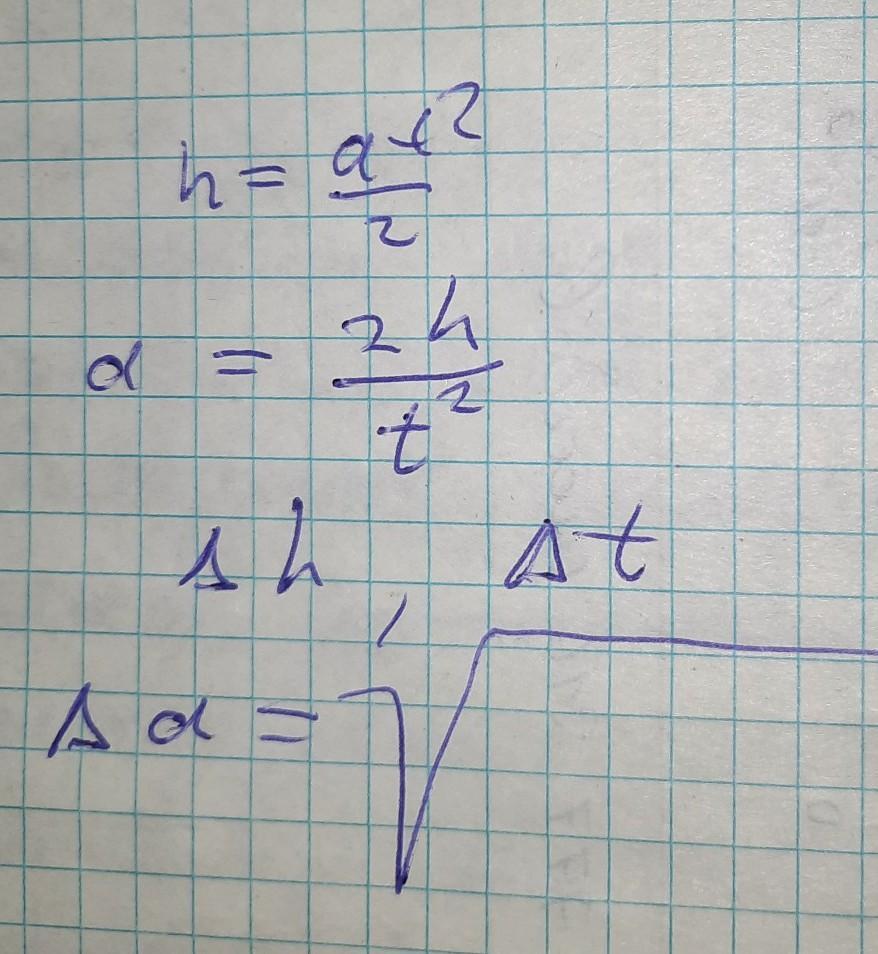 h = at²/2
a = 2h/t²
Δh, Δt
Δa = √